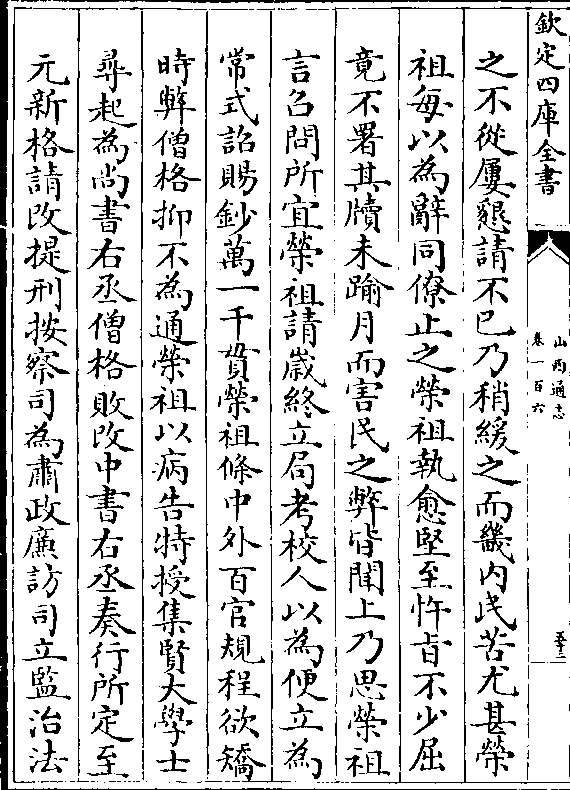 欽定四庫全書
山西通志
卷一百六
五十三
之不從屢懇請不已乃稍緩之而畿内民苦尤甚榮
祖每以為辭同僚止之榮祖執愈堅至忤旨不少屈
竟不署其牘未踰月而害民之弊皆聞上乃思榮祖
言召問所宜榮祖請歲終立局考校人以為便立為
常式詔賜鈔萬一千貫榮祖條中外百官規程欲矯
時弊僧格抑不為通榮祖以病告特授集賢大學士
尋起為尚書右丞僧格敗改中書右丞奏行所定至
元新格請改提刑按察司為肅政廉訪司立監治法